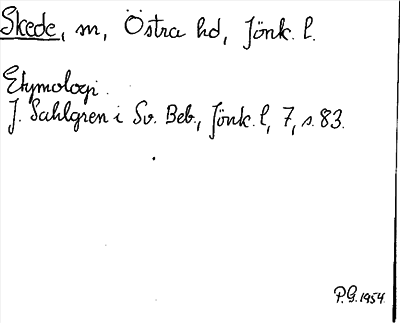 Skede, sn, Östra hd, Jönk. l.
Etymologi.
J. Sahlgren i Sv. Beb., Jönk. l, 7, s. 83.
P.G. 1954